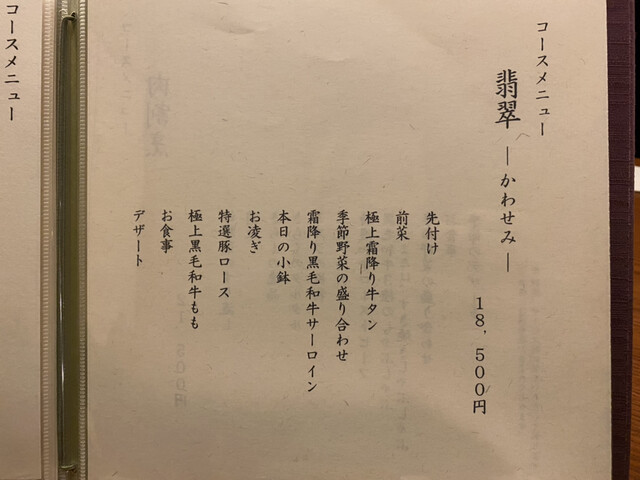 コースメニュー
翡翠 ーかわせみー
18,500円
先付け
前菜
極上霜降り牛タン
季節野菜の盛り合わせ
霜降り黒毛和牛サーロイン
本日の小鉢
お凌ぎ
特選豚ロース
極上黒毛和牛もも
お食事
デザート
コースメニュー